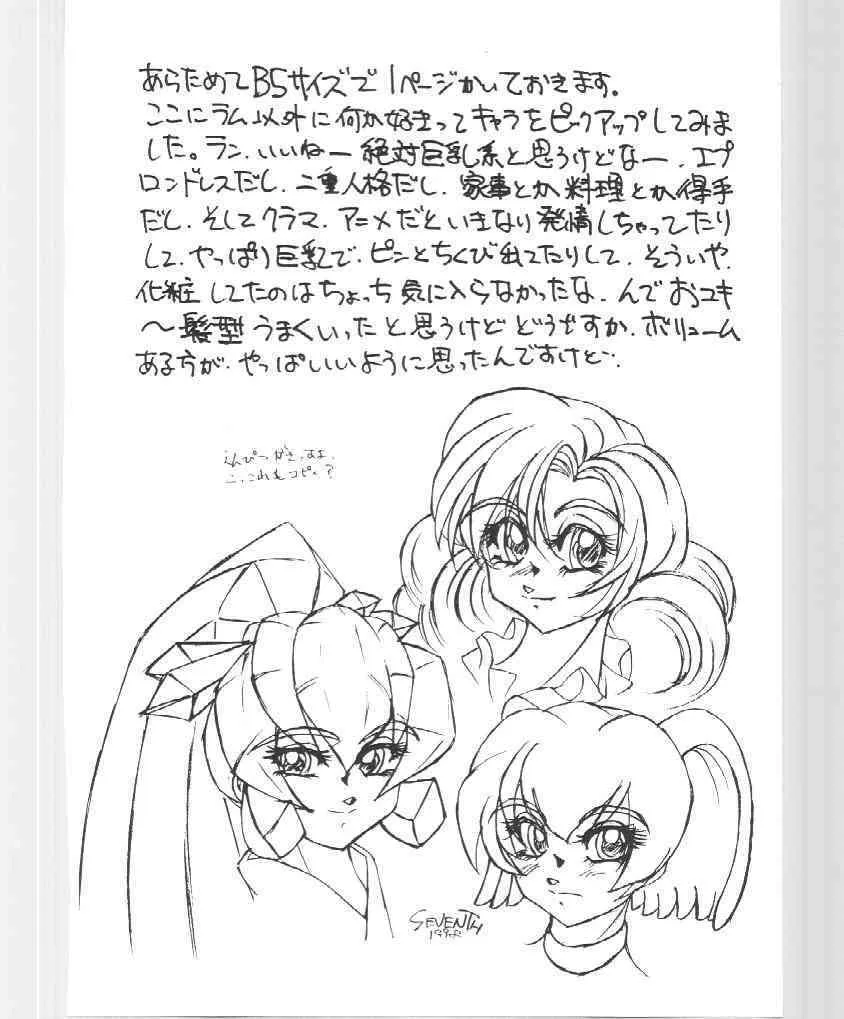 あらためてB5サイズで1ページかいておきます。
ここにラム以外に何か好きってキャラをピックアップしてみま
した。ラン、いいねー 絶対巨乳系と思うけどなー、エプ
ロンドレスだし、二重人格だし、家事とか料理とか得手
だし、そしてクラマ、アニメだといきなり発情しちゃってたり
して、やっぱり巨乳で、ピンとちくび出てたりして、そういや、
化粧してたのはちょっち気に入らなかったな、んでおユキ
〜髪型うまくいったと思うけどどうですか、ボリューム
ある方が、やっぱいいように思ったんですけど…
えんぴつがきっすよ、
こっこれもコピー?
SEVENTH